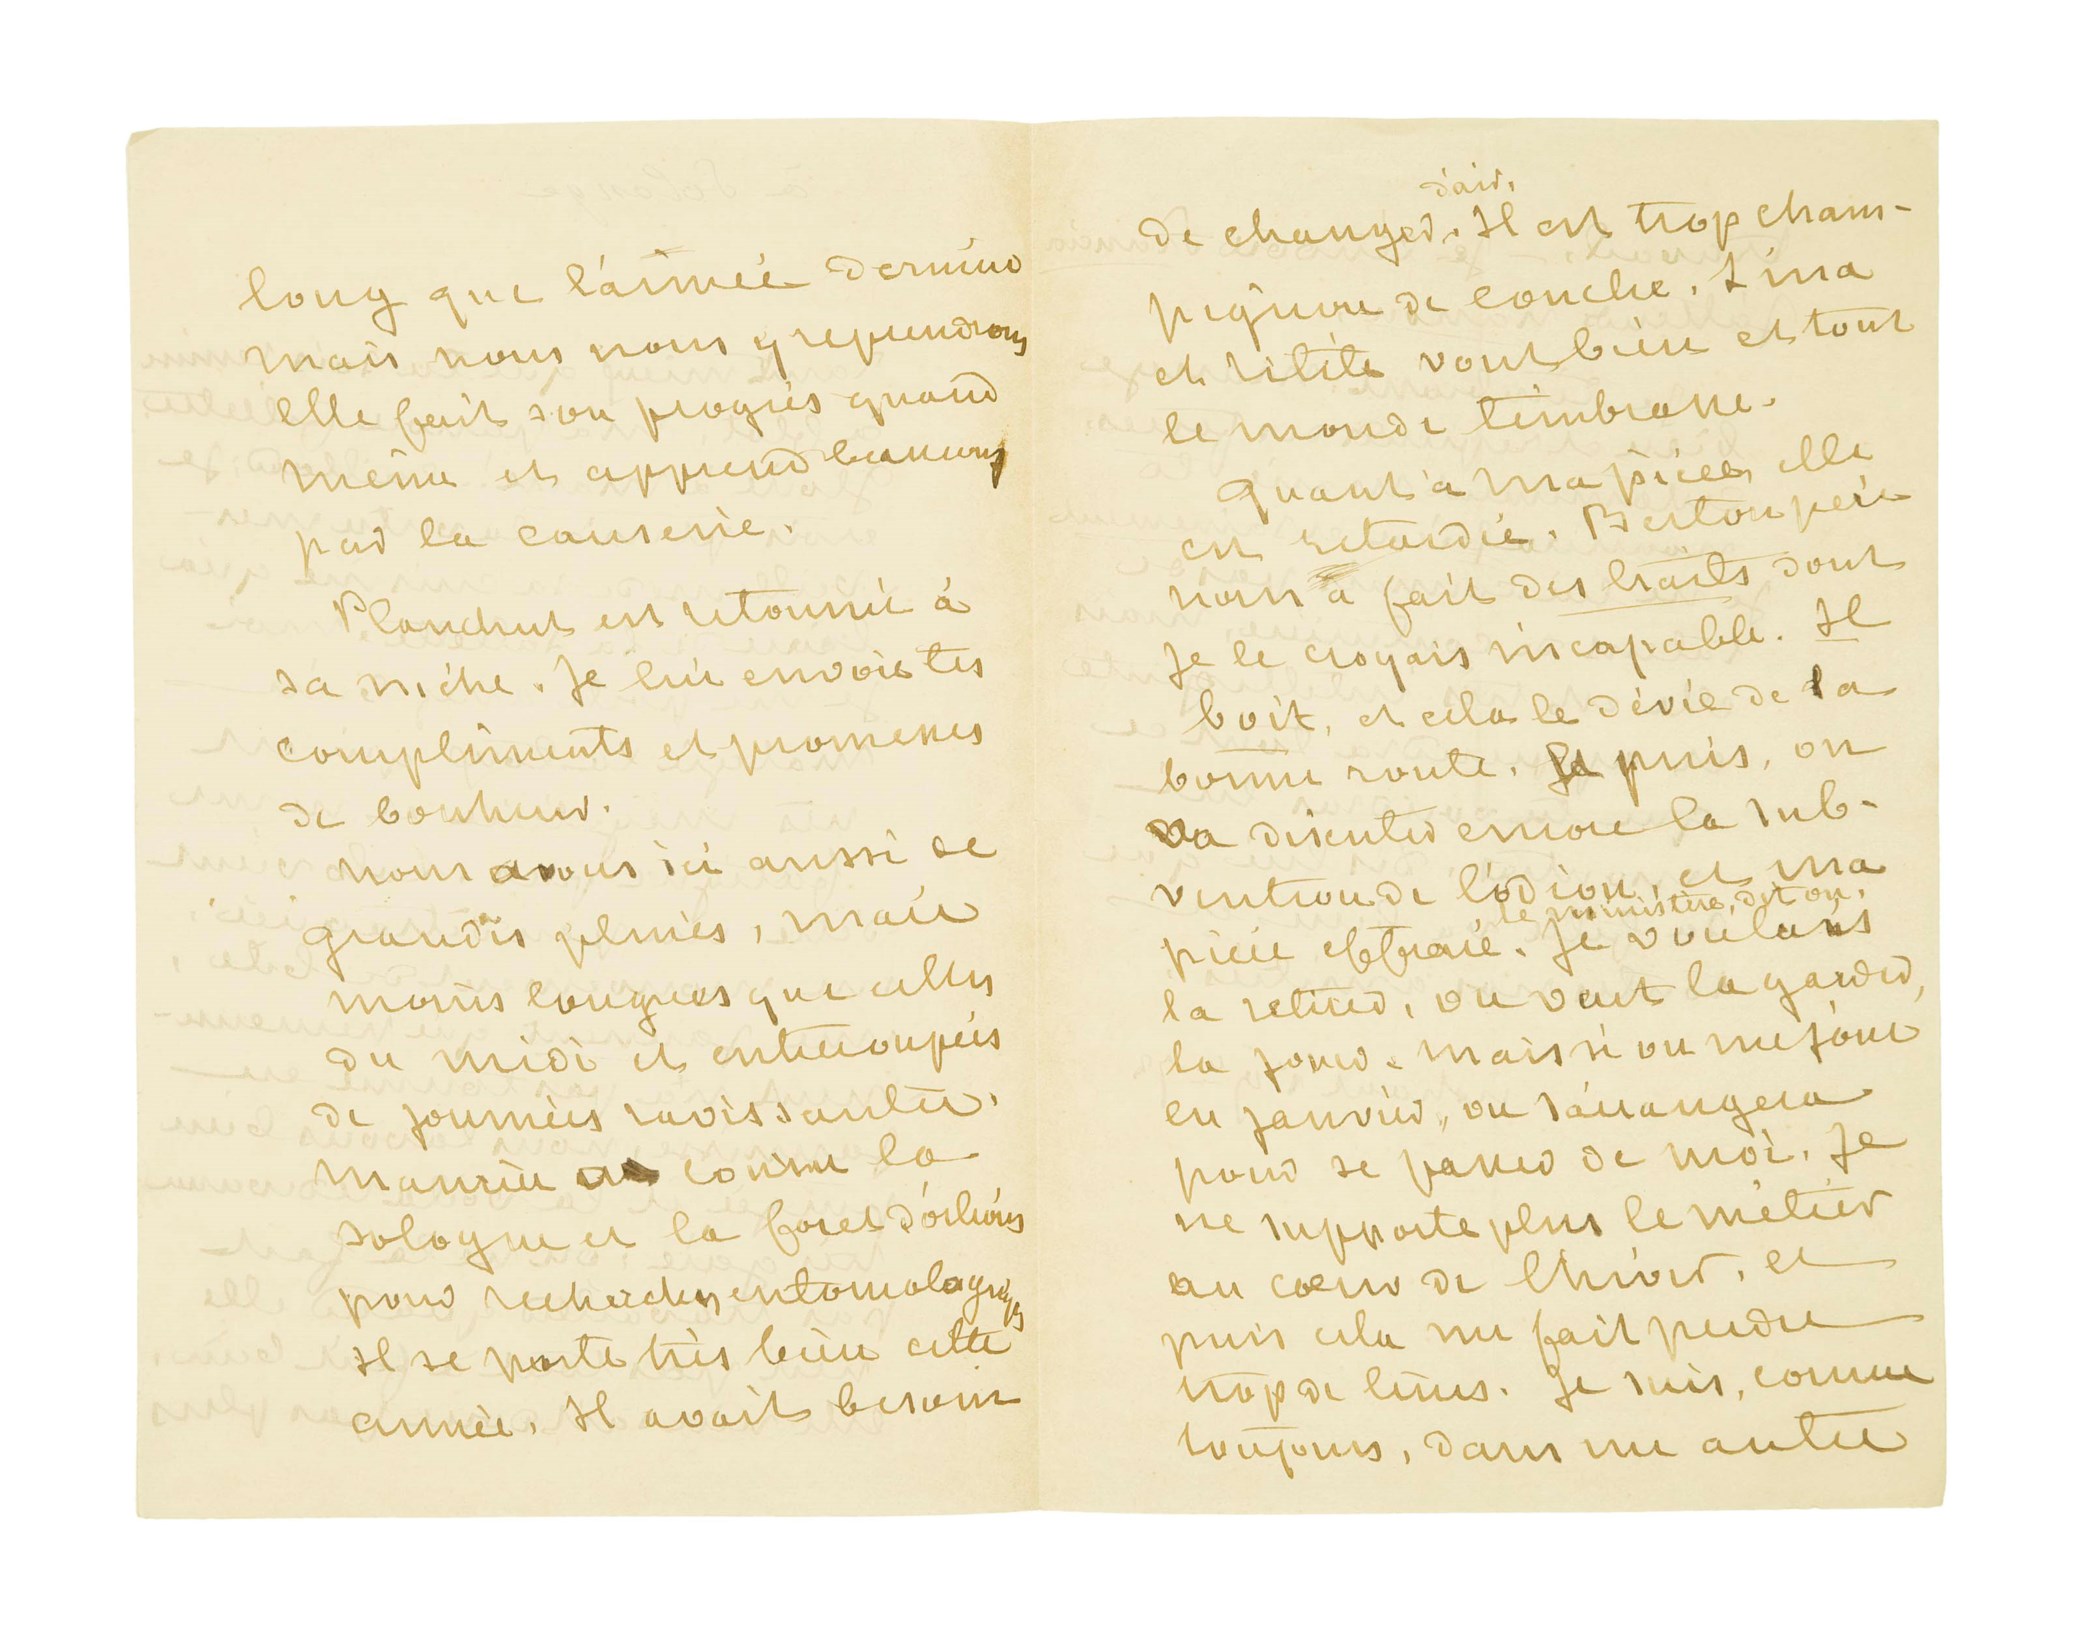 long que l'année dernière
mais nous nous y reprendrons
elle fait son progrès quand
même et apprend beaucoup
par la causerie.
Planchut est retourné à
sa niche. Je lui envoie tes
compliments et promesses
de bonheur.
nous avons ici aussi de
grandes pluies, mais
moins longues que celles
du midi et entrecoupées
de journées ravissantes.
Maurice a couru la
Sologne et la foret d'orléans
pour recherches entomologiques
Il se porte très bien cette
année. Il avait besoin
de changer d'air. Il est trop cham-
pignon de couche. Lina
et titite vont bien et tout
le monde t'embrasse.
Quant à ma pièce, elle
est retardée. Berton père
nous a fait des traits dont
je le croyais incapable. Il
boit, et cela le dévie de la
bonne route. Et puis, on
va discuter encore la sub-
vention de l'odéon, et ma
pièce effraie le ministère, dit on. Je voulais
la retirer, on veut la garder,
la jouer. Mais si on me joue
en janvier, on s'arrangera
pour se passer de moi. Je
ne supporte plus le métier
au coeur de l'hiver, et
puis cela me fait perdre
trop de tems. Je suis, comme
toujours, dans une autre